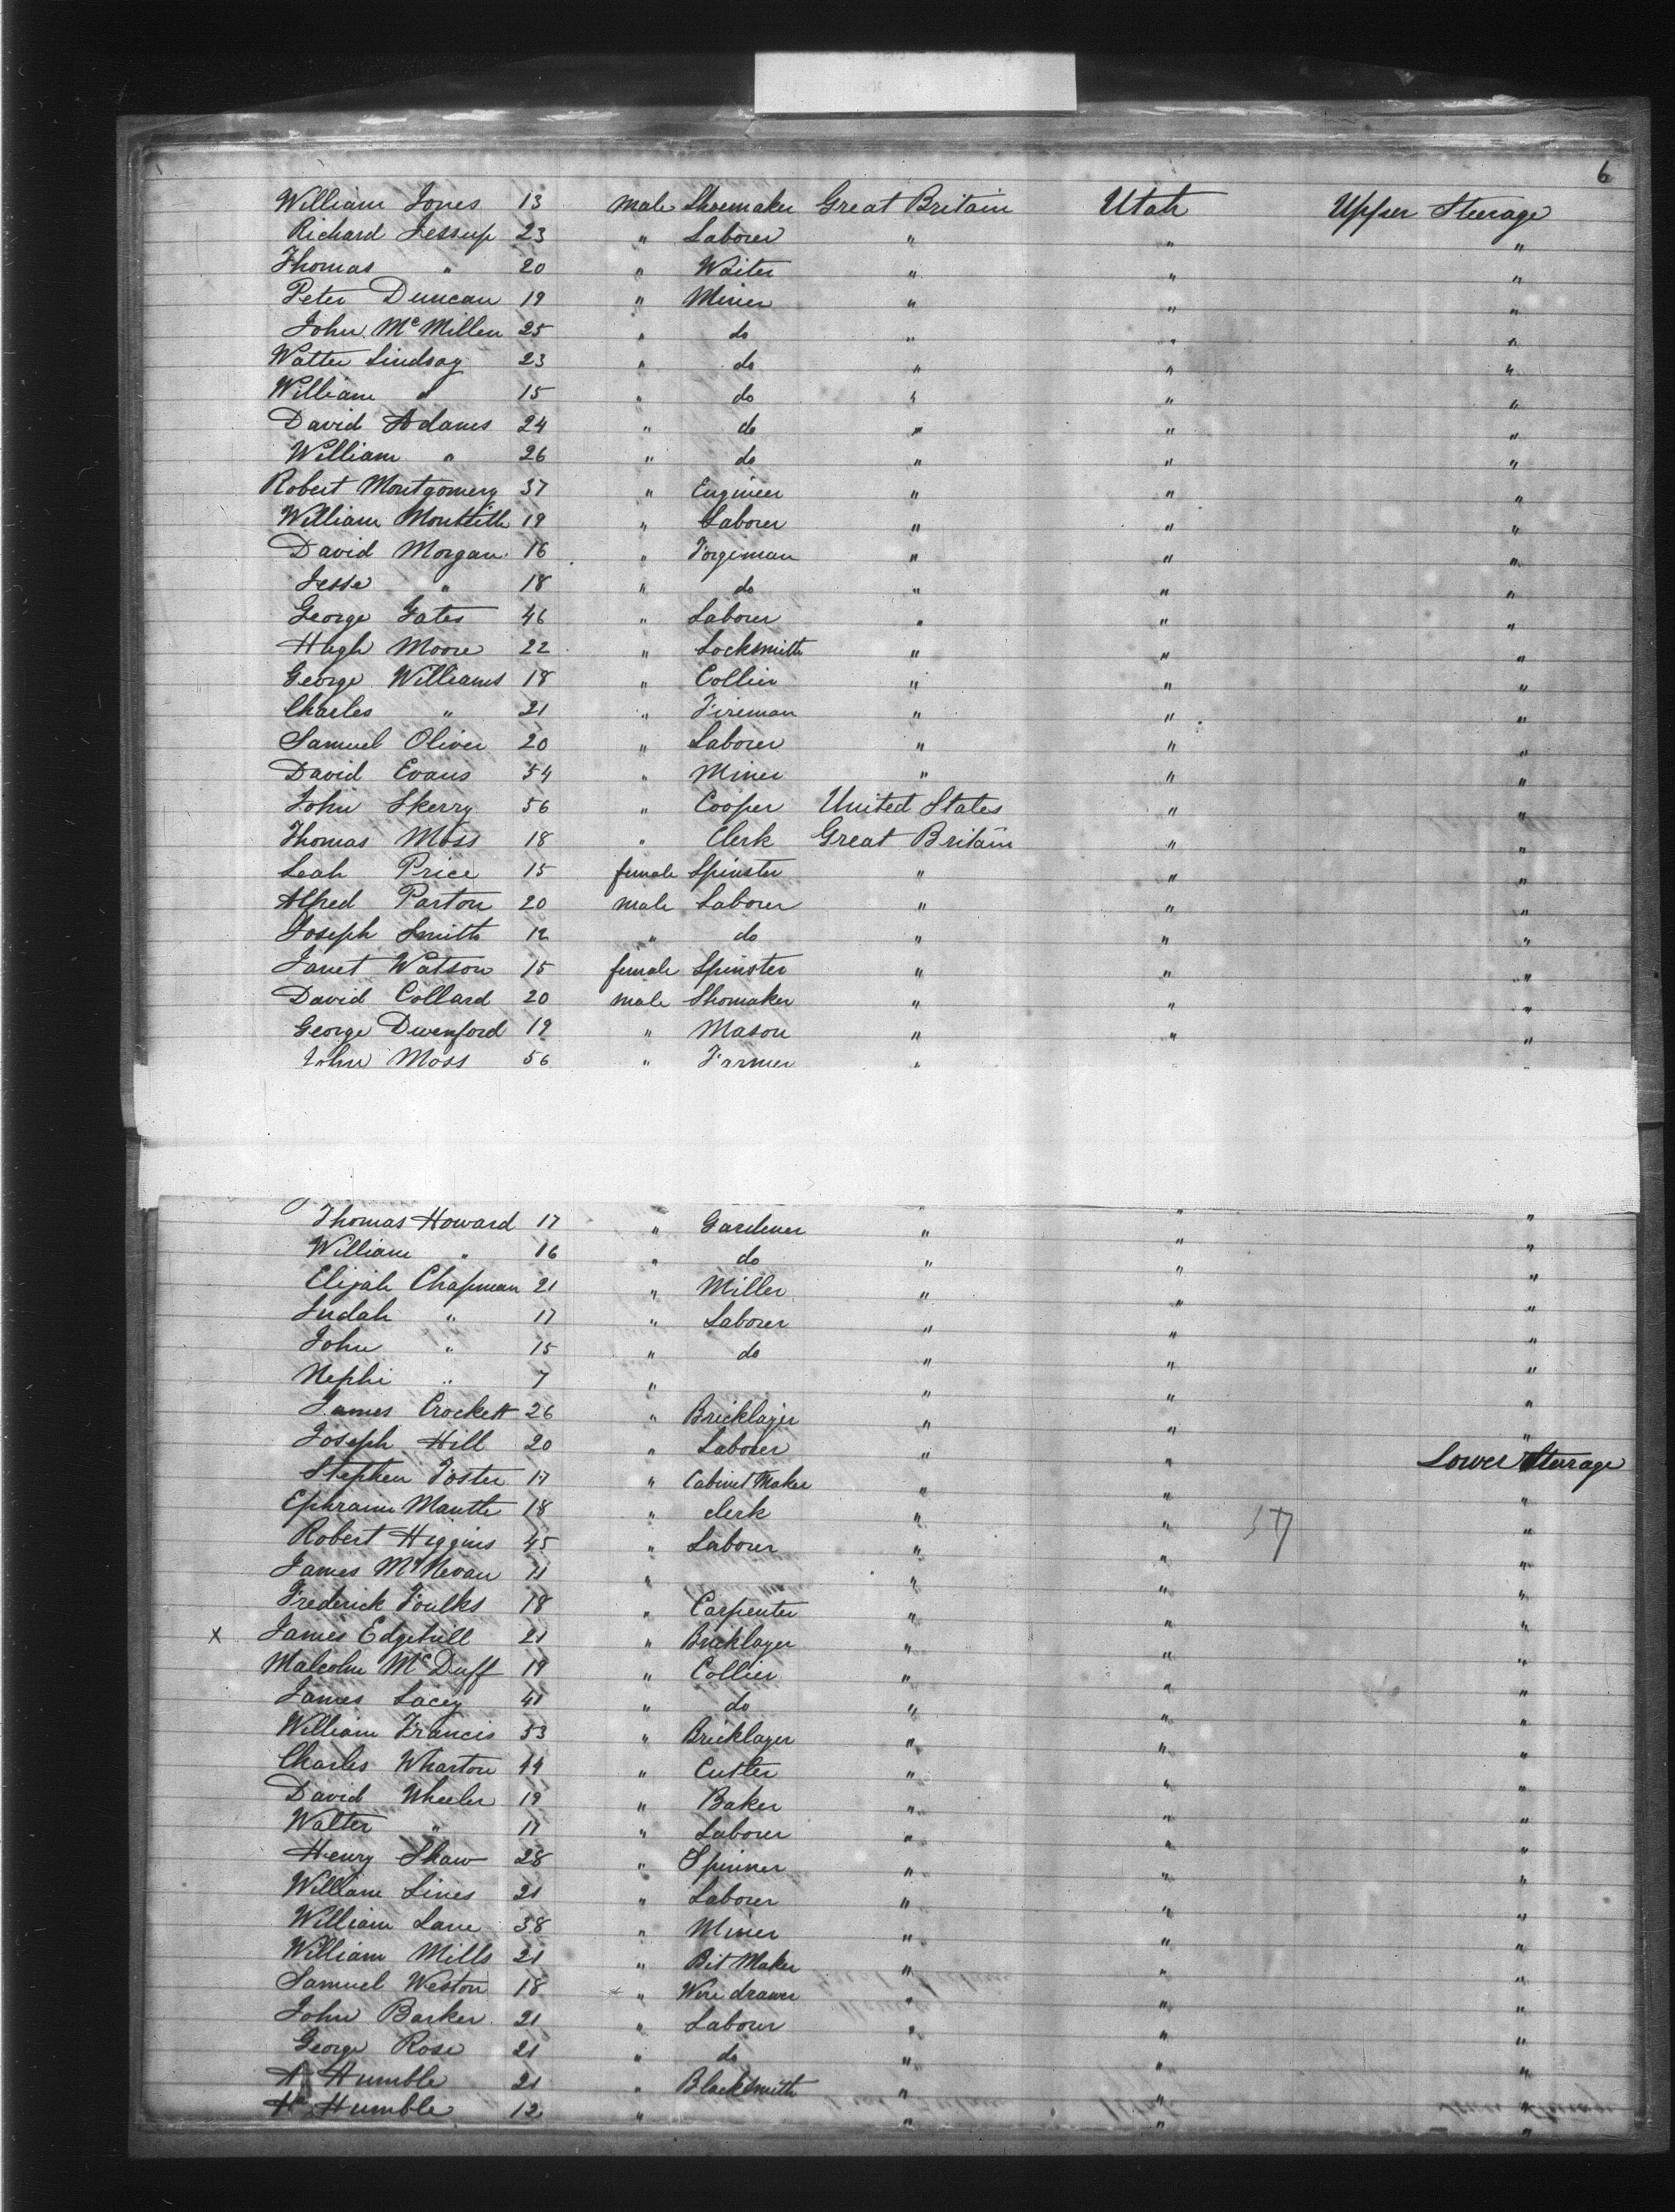 6
William Jones 13 male Shoemaker Great Britain Utah Upper Steerage
Richard Jessup 23 " Laborer " " "
Thomas " 20 " Waiter " " "
Peter Duncan 19 " Miner " " "
John McMillen 25 " do " " "
Walter Lindsay 23 " do " " "
William " 15 " do " " "
David Adams 24 " do " " "
William " 26 " do " " "
Robert Montgomery 37 " Engineer " " "
William 19 " Laborer " " "
David Morgan 16 " Forgeman " " "
Jesse " 18 " do " " "
George Yates 46 " Laborer " " "
Hugh Moore 22 " Locksmith " " "
George Williams 18 " Collier " " "
Charles " 21 " Fireman " " "
Samuel Oliver 20 " Laborer " " "
David Evans 54 " Miner " " "
John Skerry 56 " Cooper United States " "
Thomas Moss 18 " Clerk Great Britain " "
Leah Price 15 female Spinster " " "
Alfred Parton 20 male Laborer " " "
Joseph Smith 12 " do " " "
Janet Watson 15 female Spinster " " "
David Collard 20 male Shomaker " " "
George Dwenford 19 " Mason " " "
John Moss 56 " Farmer " " "
Thomas Howard 17 " Gardener " " "
William " 16 " do " " "
Elijah Chapman 21 " Miller " " "
Judah " 17 " Laborer " " "
John " 15 " do " " "
Nephi " 7 " " " "
James Crockett 26 " Bricklayer " " "
Joseph Hill 20 " Laborer " " Lower Steerage
Stephen Foster 17 " Cabinet Maker " " "
Ephraim 18 " clerk " " "
Robert Higgins 45 " Laborer " " "
James McNevan 11 " " " "
Frederick Foulks 18 " Carpenter " " "
X James Edgehill 21 " Bricklayer " " "
Malcolm McDuff 19 " Collier " " "
James Lacey 41 " do " " "
William Francis 53 " Bricklayer " " "
Charles Wharton 44 " Cutler " " "
David Wheeler 19 " Baker " " "
Walter " 17 " Laborer " " "
Henry Shaw 28 " Spinner " " "
William Lines 21 " Laborer " " "
William Lane 38 " Miner " " "
William Mills 21 " Bit Maker " " "
Samuel Weston 18 " Wire drawer " " "
John Barker 21 " Laborer " " "
George Rose 21 " do " " "
Humble 21 " Blacksmith " " "
H Humble 12 " " " "